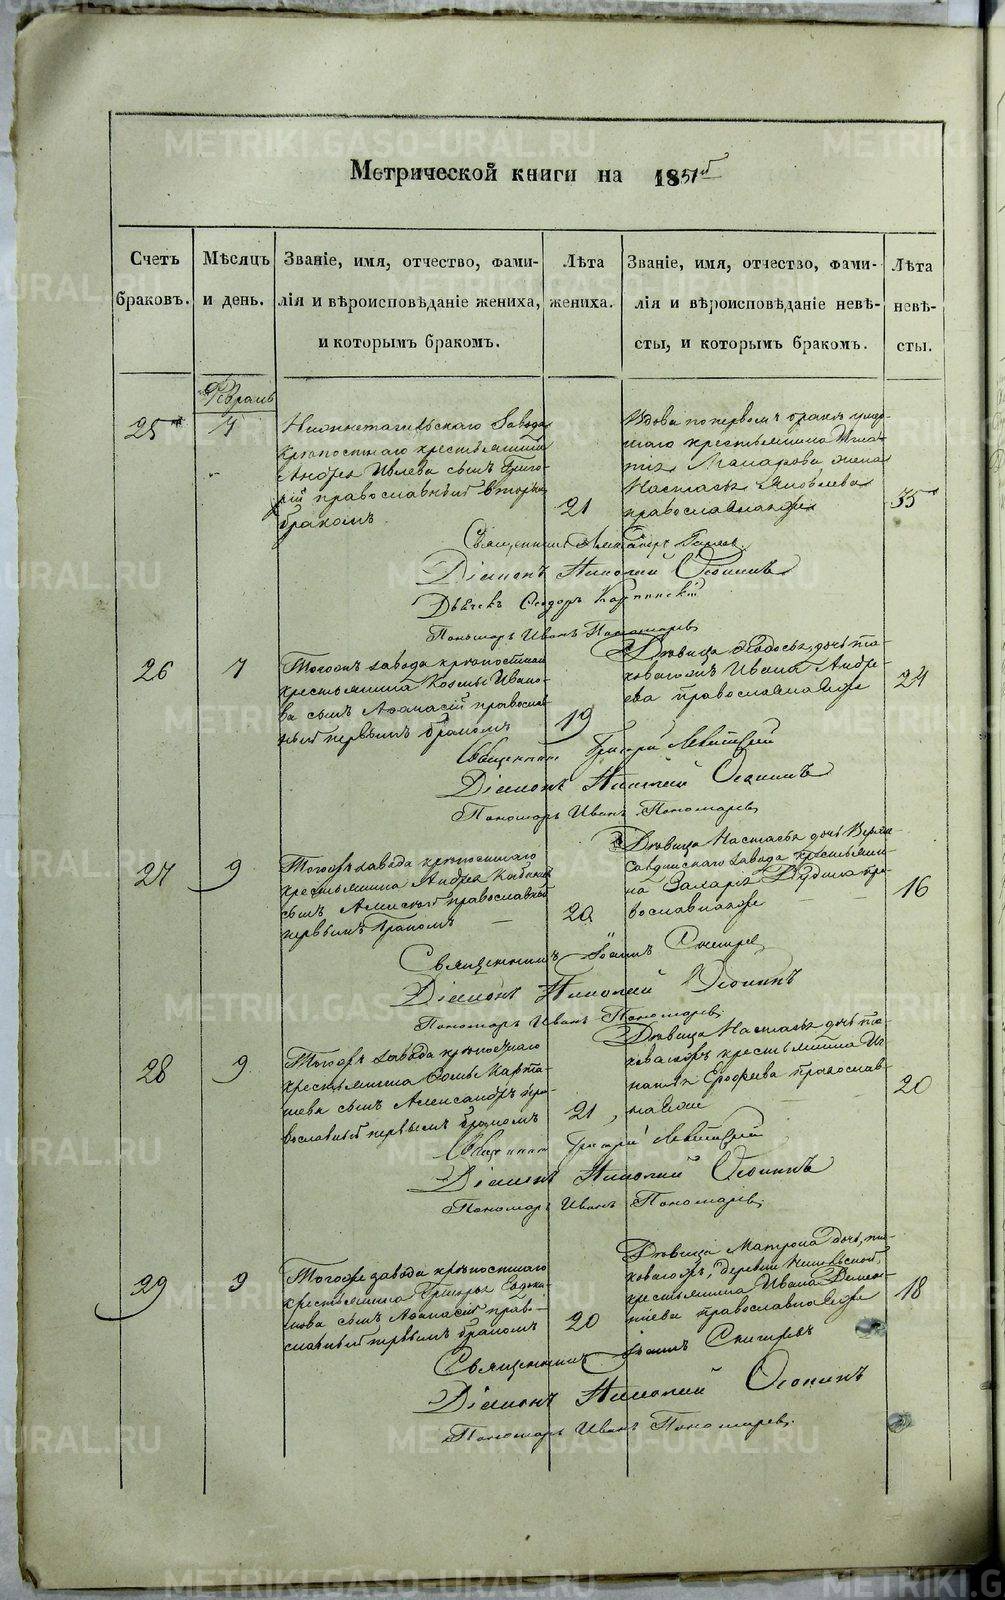 Метрической книги на 1851й
Счетъ браковъ.
Мѣсяцъ и день.
Званіе, имя, отчество, фами-
лія и вѣроисповѣданіе жениха,
и которымъ бракомъ.
Лѣта жениха.
Званіе, имя, отчество, фами-
лія и вѣроисповѣданіе невѣ-
сты, и которымъ бракомъ.
Лѣта невѣ-
сты.
Февраль
25
7
Нижнетагильскаго Завода
крѣпостнаго крестьянина
Андрея Ивлева сынъ Григо-
рій православный вторымъ
бракомъ
21
Вдова по первомъ бракѣ умер-
шаго крестьянина Игна-
тія Макарова жена
Настасья Яковлева
православная же
35
Священникъ Александръ
Діаконъ Николай Осонинъ
Дьячекъ Ѳеодоръ
Пономарь Иванъ Пономаревъ
26
7
Тогожъ завода крѣпостнаго
крестьянина Козмы Ивано-
ва сынъ Аѳанасій православ-
ный первымъ бракомъ
19
Дѣвица Ѳедосья, дочь та-
коваго жъ Ивана Андре-
ева православная же
24
Священникъ Григорій Левитскій
Діаконъ Николай Осонинъ
Пономарь Иванъ Пономаревъ
27
9
Тогожъ завода крѣпостнаго
крестьянина Андрея
сынъ Алексей православный
первымъ бракомъ
20
Дѣвица Настасья дочь Верхне
Салдинскаго завода крестьяни-
на Захара Дудина пра-
вославная же
16
Священникъ Іоаннъ Снигирев
Діаконъ Николай Осонинъ
Пономарь Иванъ Пономаревъ
28
9
Тогожъ завода крѣпостнаго
крестьянина Ѳомы Карта-
шева сынъ Александръ пра-
вославный первымъ бракомъ
21
Дѣвица Настасья дочь та-
коваго жъ крестьянина Иг-
натья Ерофеева православ-
ная же
20
Священникъ Григорій Левитскій
Діаконъ Николай Осонинъ
Пономарь Иванъ Пономаревъ
29
9
Тогоже завода крѣпостнаго
крестьянина Григорья Евдоки-
мова сынъ Аѳанасій право-
славный первымъ бракомъ
20
Дѣвица Матрона дочь, та-
коваго жъ, деревни
крестьянина Ивана Демен-
тиева православная же
18
Священникъ Іоаннъ Снигиревъ
Діаконъ Николай Осонинъ
Пономарь Иванъ Пономаревъ
METRIKI.GASO-URAL.RU